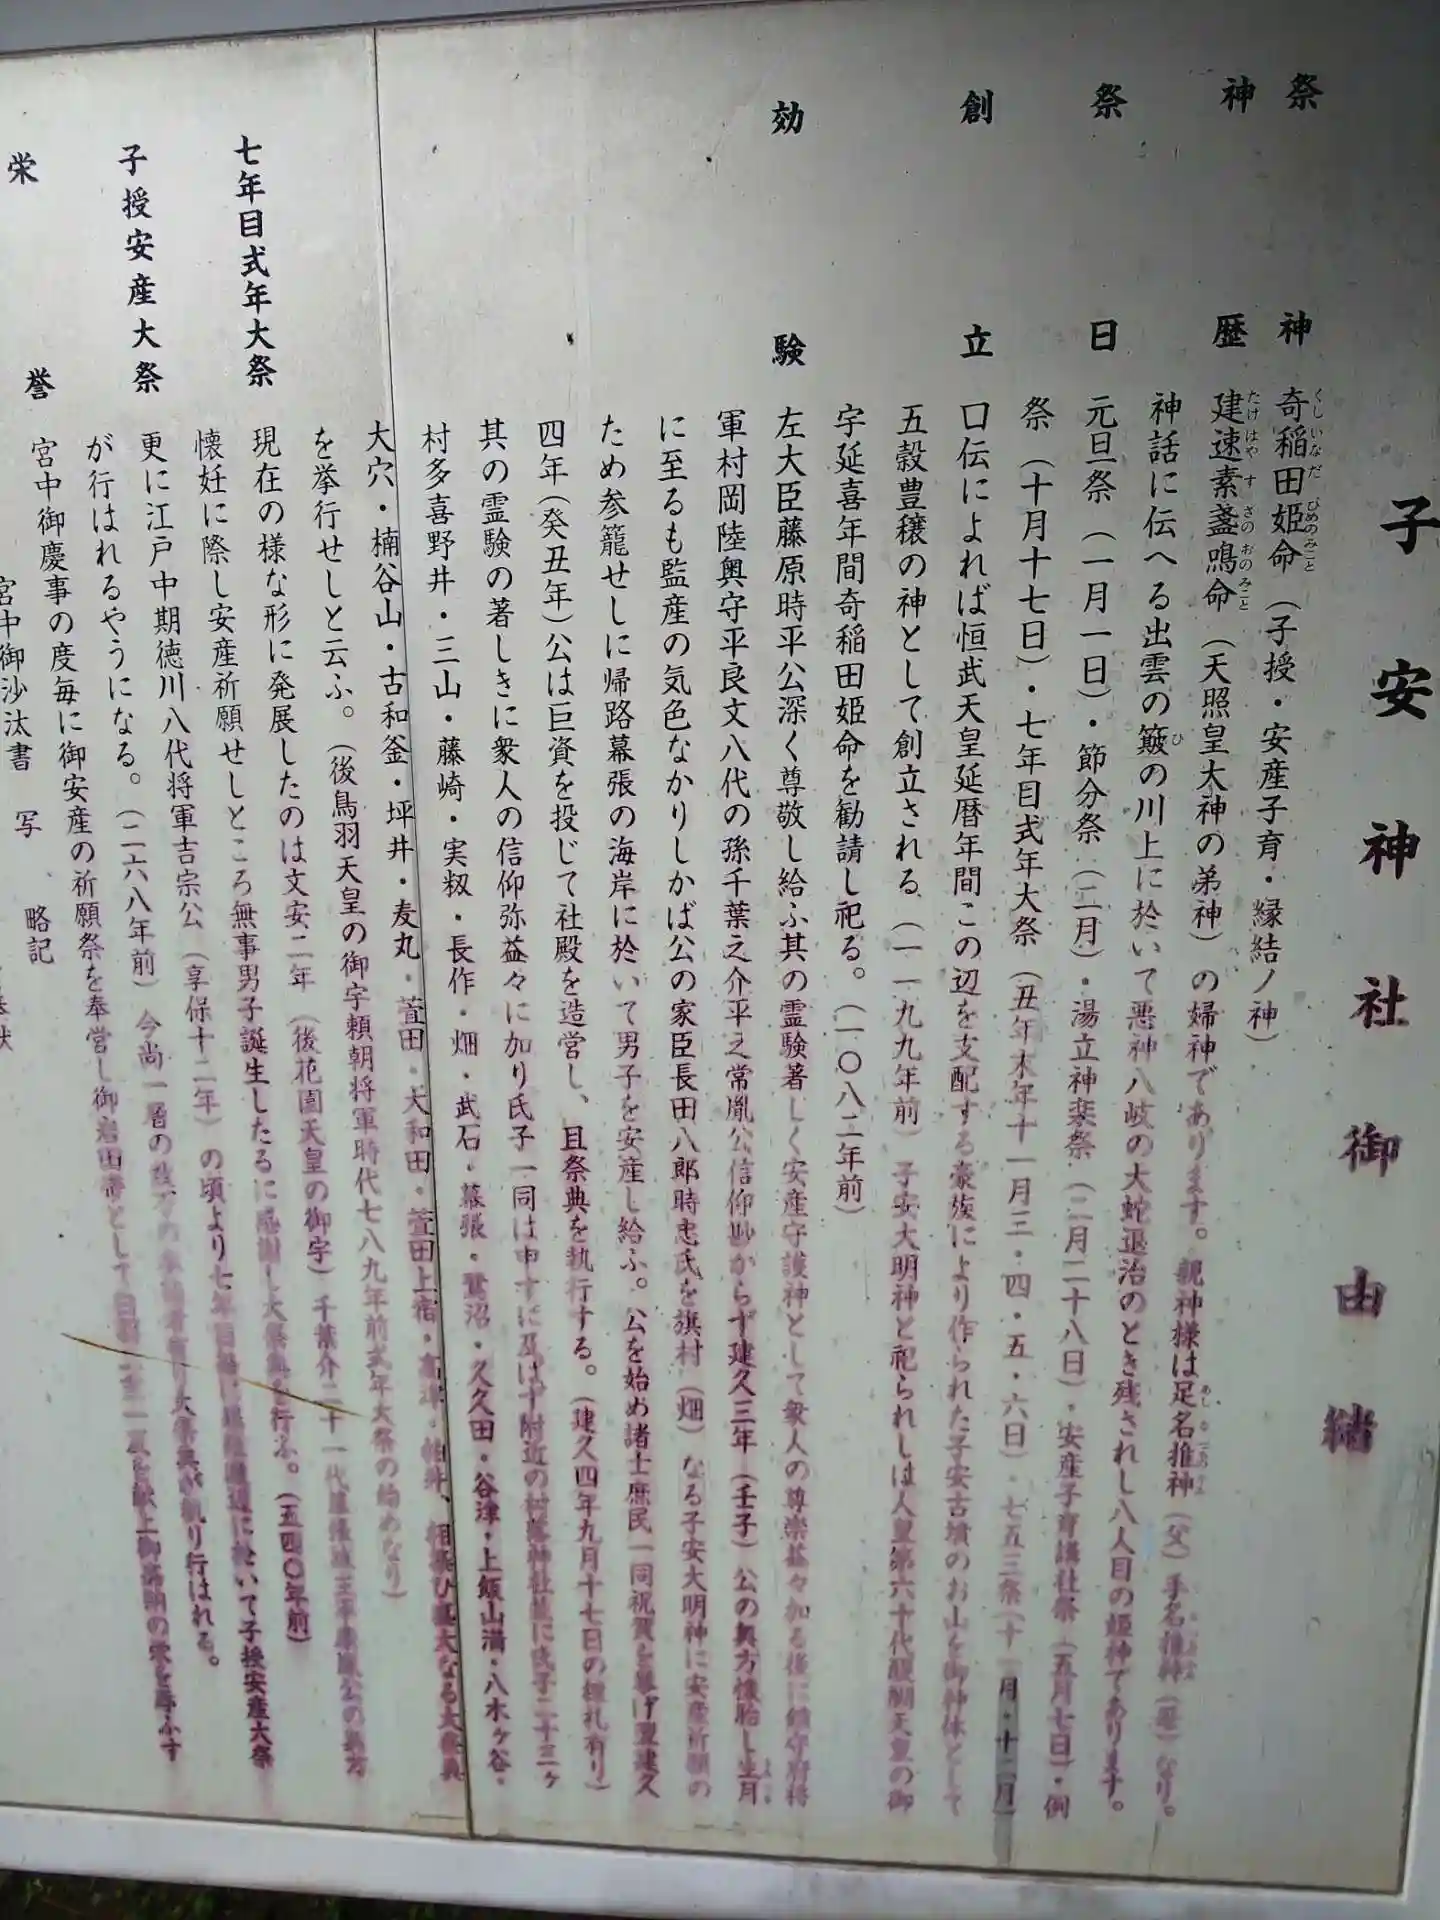 子安神社御由緒
祭神 奇稲田姫命(子授・安産子育・縁結ノ神)
くしいなだ ひめのみこと
神歴 建速素盞鳴命(天照皇大神の弟神)の婦神であります。親神様は足名推神(父)手名推神(母)なり。
たけ はや す さの おの みこと
神話に伝へる出雲の簸の川上に於いて悪神八岐の大蛇退治のとき残されし八人目の姫神であります。
ひ
祭日 元旦祭(一月一日)・節分祭(二月)・湯立神楽祭(二月二十八日)・安産子育講社祭(五月七日)・例
祭(十月十七日)・七年目式年大祭(丑年未年十一月三・四・五・六日)・七五三祭(十一月・十二月)
創立 口伝によれば恒武天皇延暦年間この辺を支配する豪族により作られた子安古墳のお山を御神体として
五穀豊穣の神として創立される(一一九九年前)子安大明神と祀られしは人皇第六十代醍醐天皇の御
宇延喜年間奇稲田姫命を勧請し祀る。(一〇八二年前)
効験 左大臣藤原時平公深く尊敬し給ふ其の霊験著しく安産守護神として衆人の尊崇益々加る後に鎮守府将
軍村岡陸奥守平良文八代の孫千葉之介平之常胤公信仰浅からず建久三年(壬子)公の奥方懐胎し生月
に至るも監産の気色なかりしかば公の家臣長田八郎時忠氏を旗村(畑)なる子安大明神に安産祈願の
ため参籠せしに帰路幕張の海岸に於いて男子を安産し給ふ。公を始め諸士庶民一同祝賀を挙げ翌建久
四年(癸丑年)公は巨資を投じて社殿を造営し、且祭典を執行する。(建久四年九月十七日の棟札有り)
其の霊験の著しきに衆人の信仰弥益々に加り氏子一同は申すに及ばず附近の村落神社並に氏子二十三ヶ
村多喜野井・三山・藤崎・実籾・長作・畑・武石・幕張・鷺沼・久久田・谷津・上飯山満・八木ヶ谷・
大穴・楠谷山・古和釜・坪井・麦丸・萱田・大和田・萱田上宿・高津・柏井、相集ひ盛大なる大祭典
を挙行せしと云ふ。(後鳥羽天皇の御宇頼朝将軍時代七八九年前式年大祭の始めなり)
七年目式年大祭 現在の様な形に発展したのは文安二年(後花園天皇の御宇)千葉介二十一代公の奥方
懐妊に際し安産祈願せしところ無事男子誕生したるに感謝し大祭典を行ふ。(五四〇年前)
子授安産大祭 更に江戸中期徳川八代将軍吉宗公(享保十二年)の頃より七年目毎に於いて子授安産大祭
が行はれるやうになる。(二六八年前)今尚一層の大祭典が執り行はれる。
栄誉 宮中御慶事の度毎に御安産の祈願祭を奉営し御岩田帯として
宮中御沙汰書 写 略記